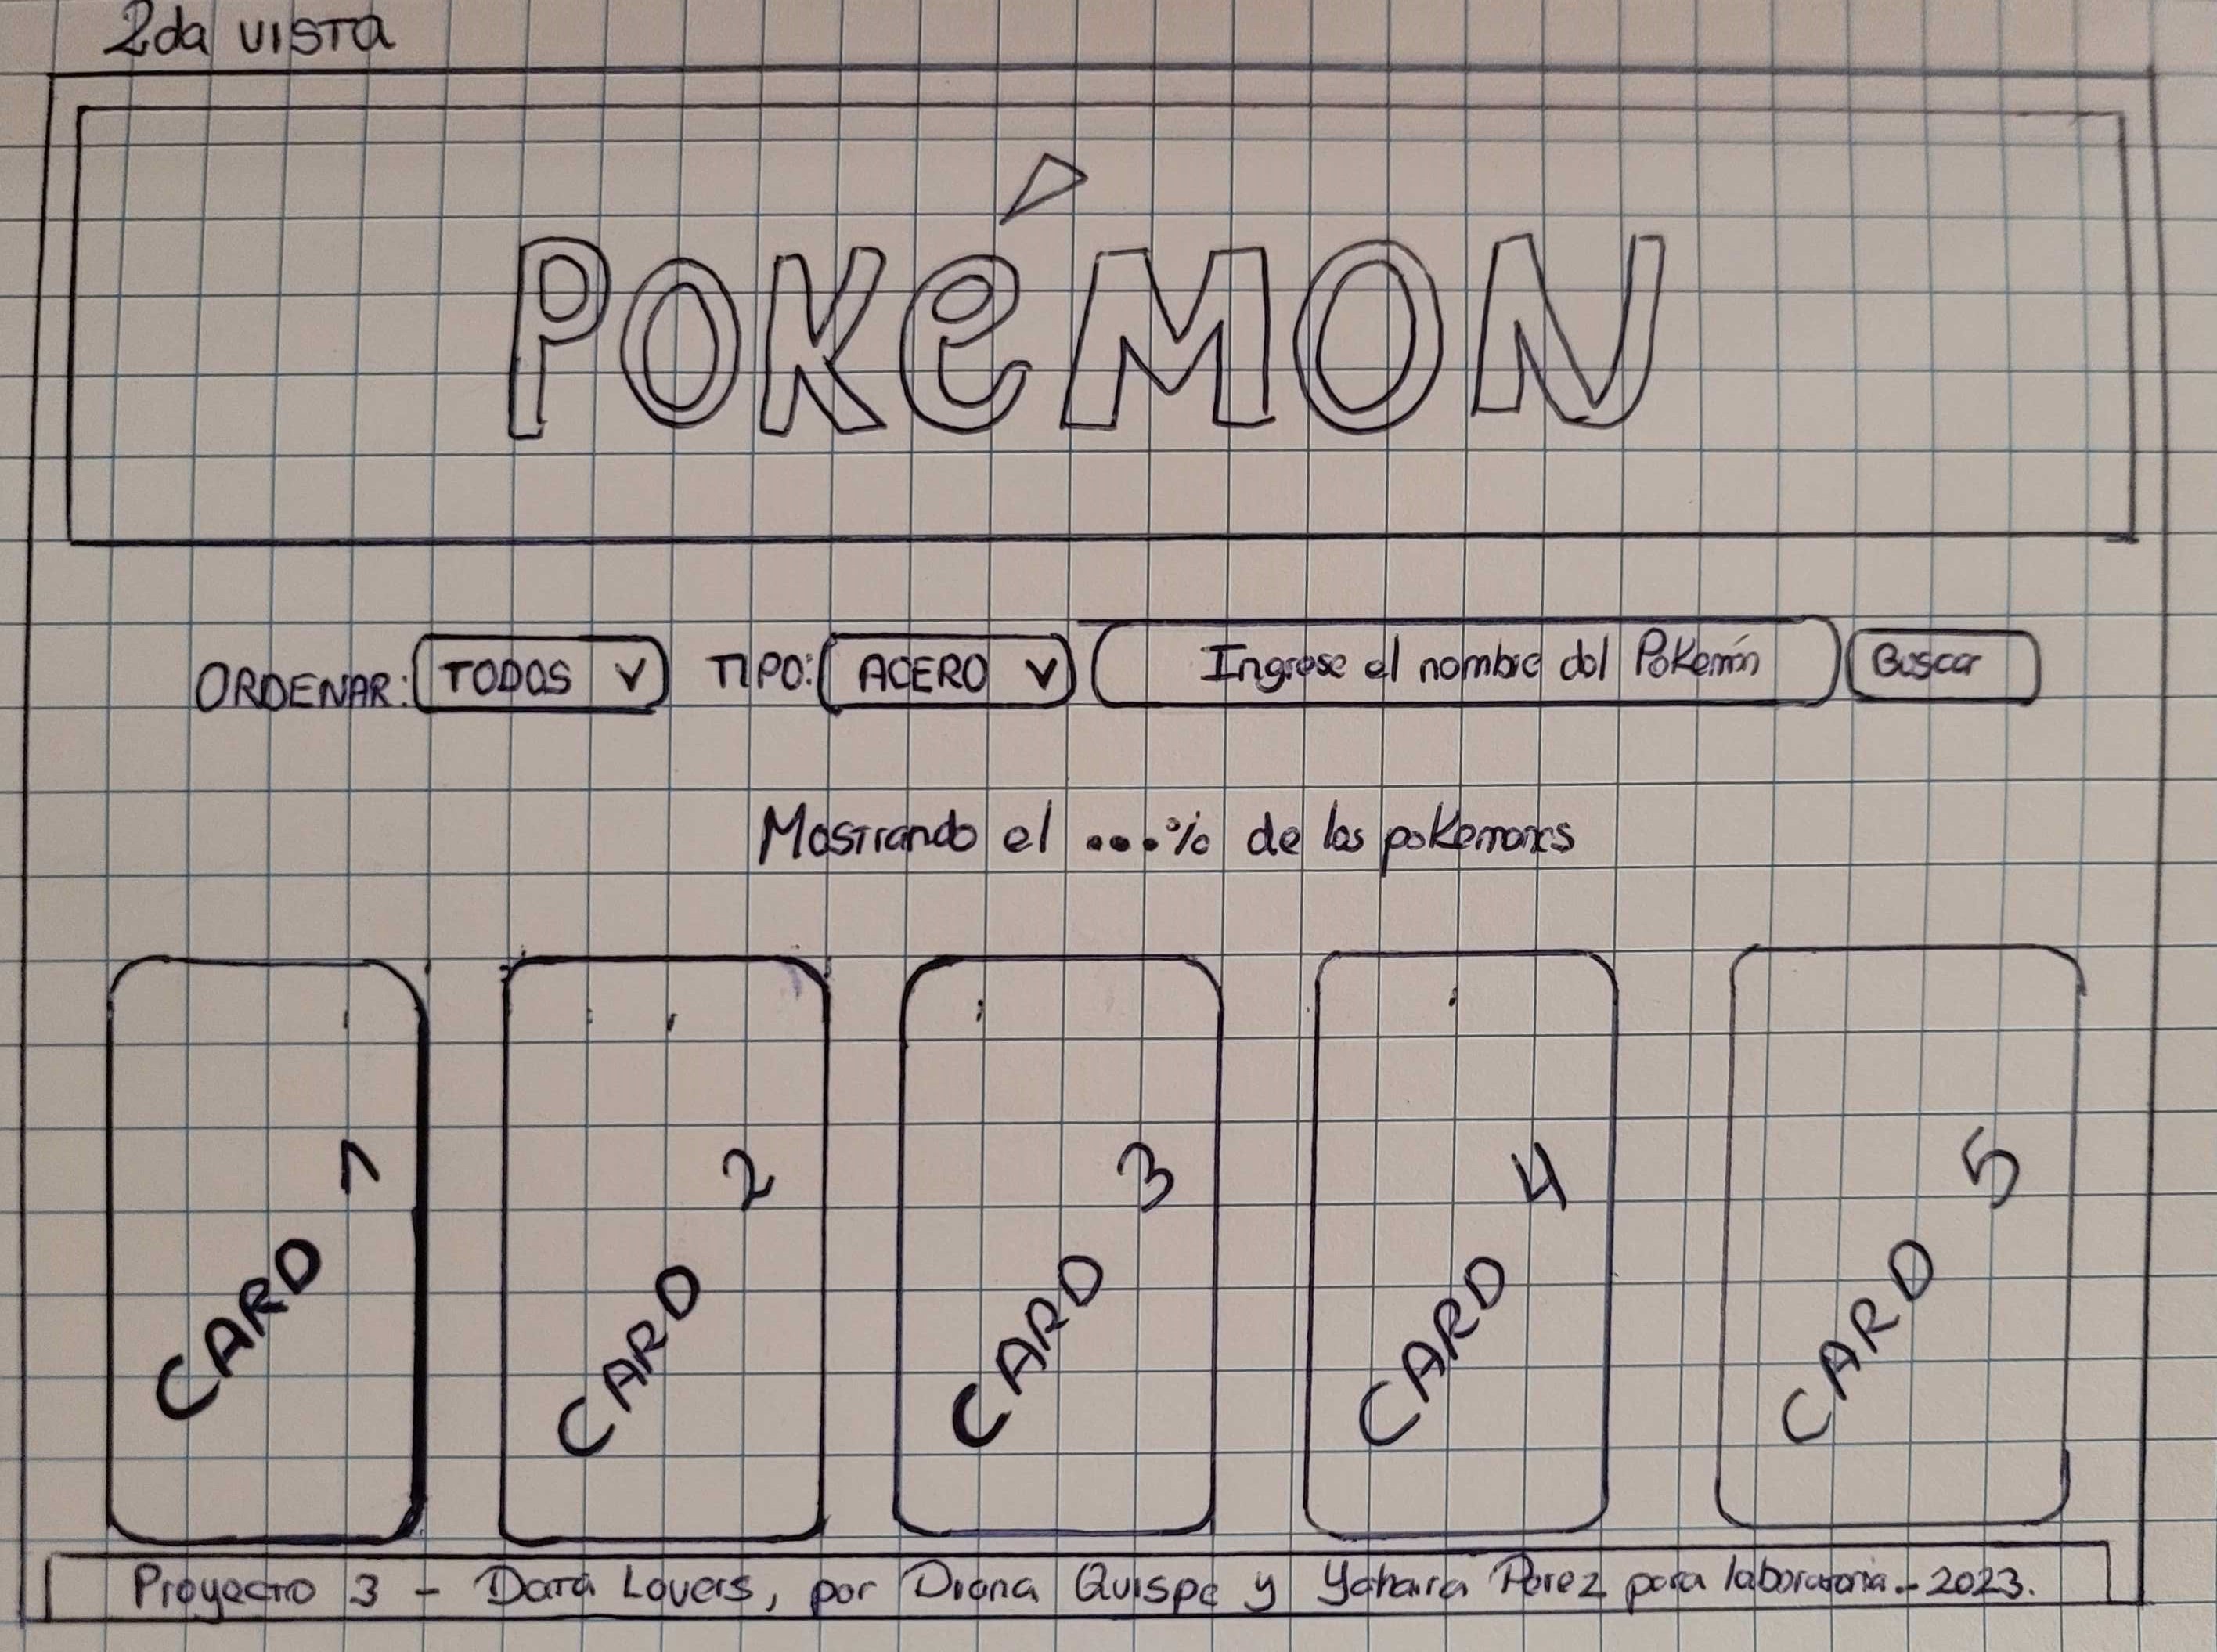 2da VISTA
POKÉMON
ORDENAR: TODOS V TIPO: ACERO V Ingrese el nombre del Pokemón Buscar
Mostrando el ...% de los pokemones
CARD 1 CARD 2 CARD 3 CARD 4 CARD 5
Proyecto 3 - Data Lovers, por Diana Quispe y Yahaira Perez para laboratoria.- 2023.